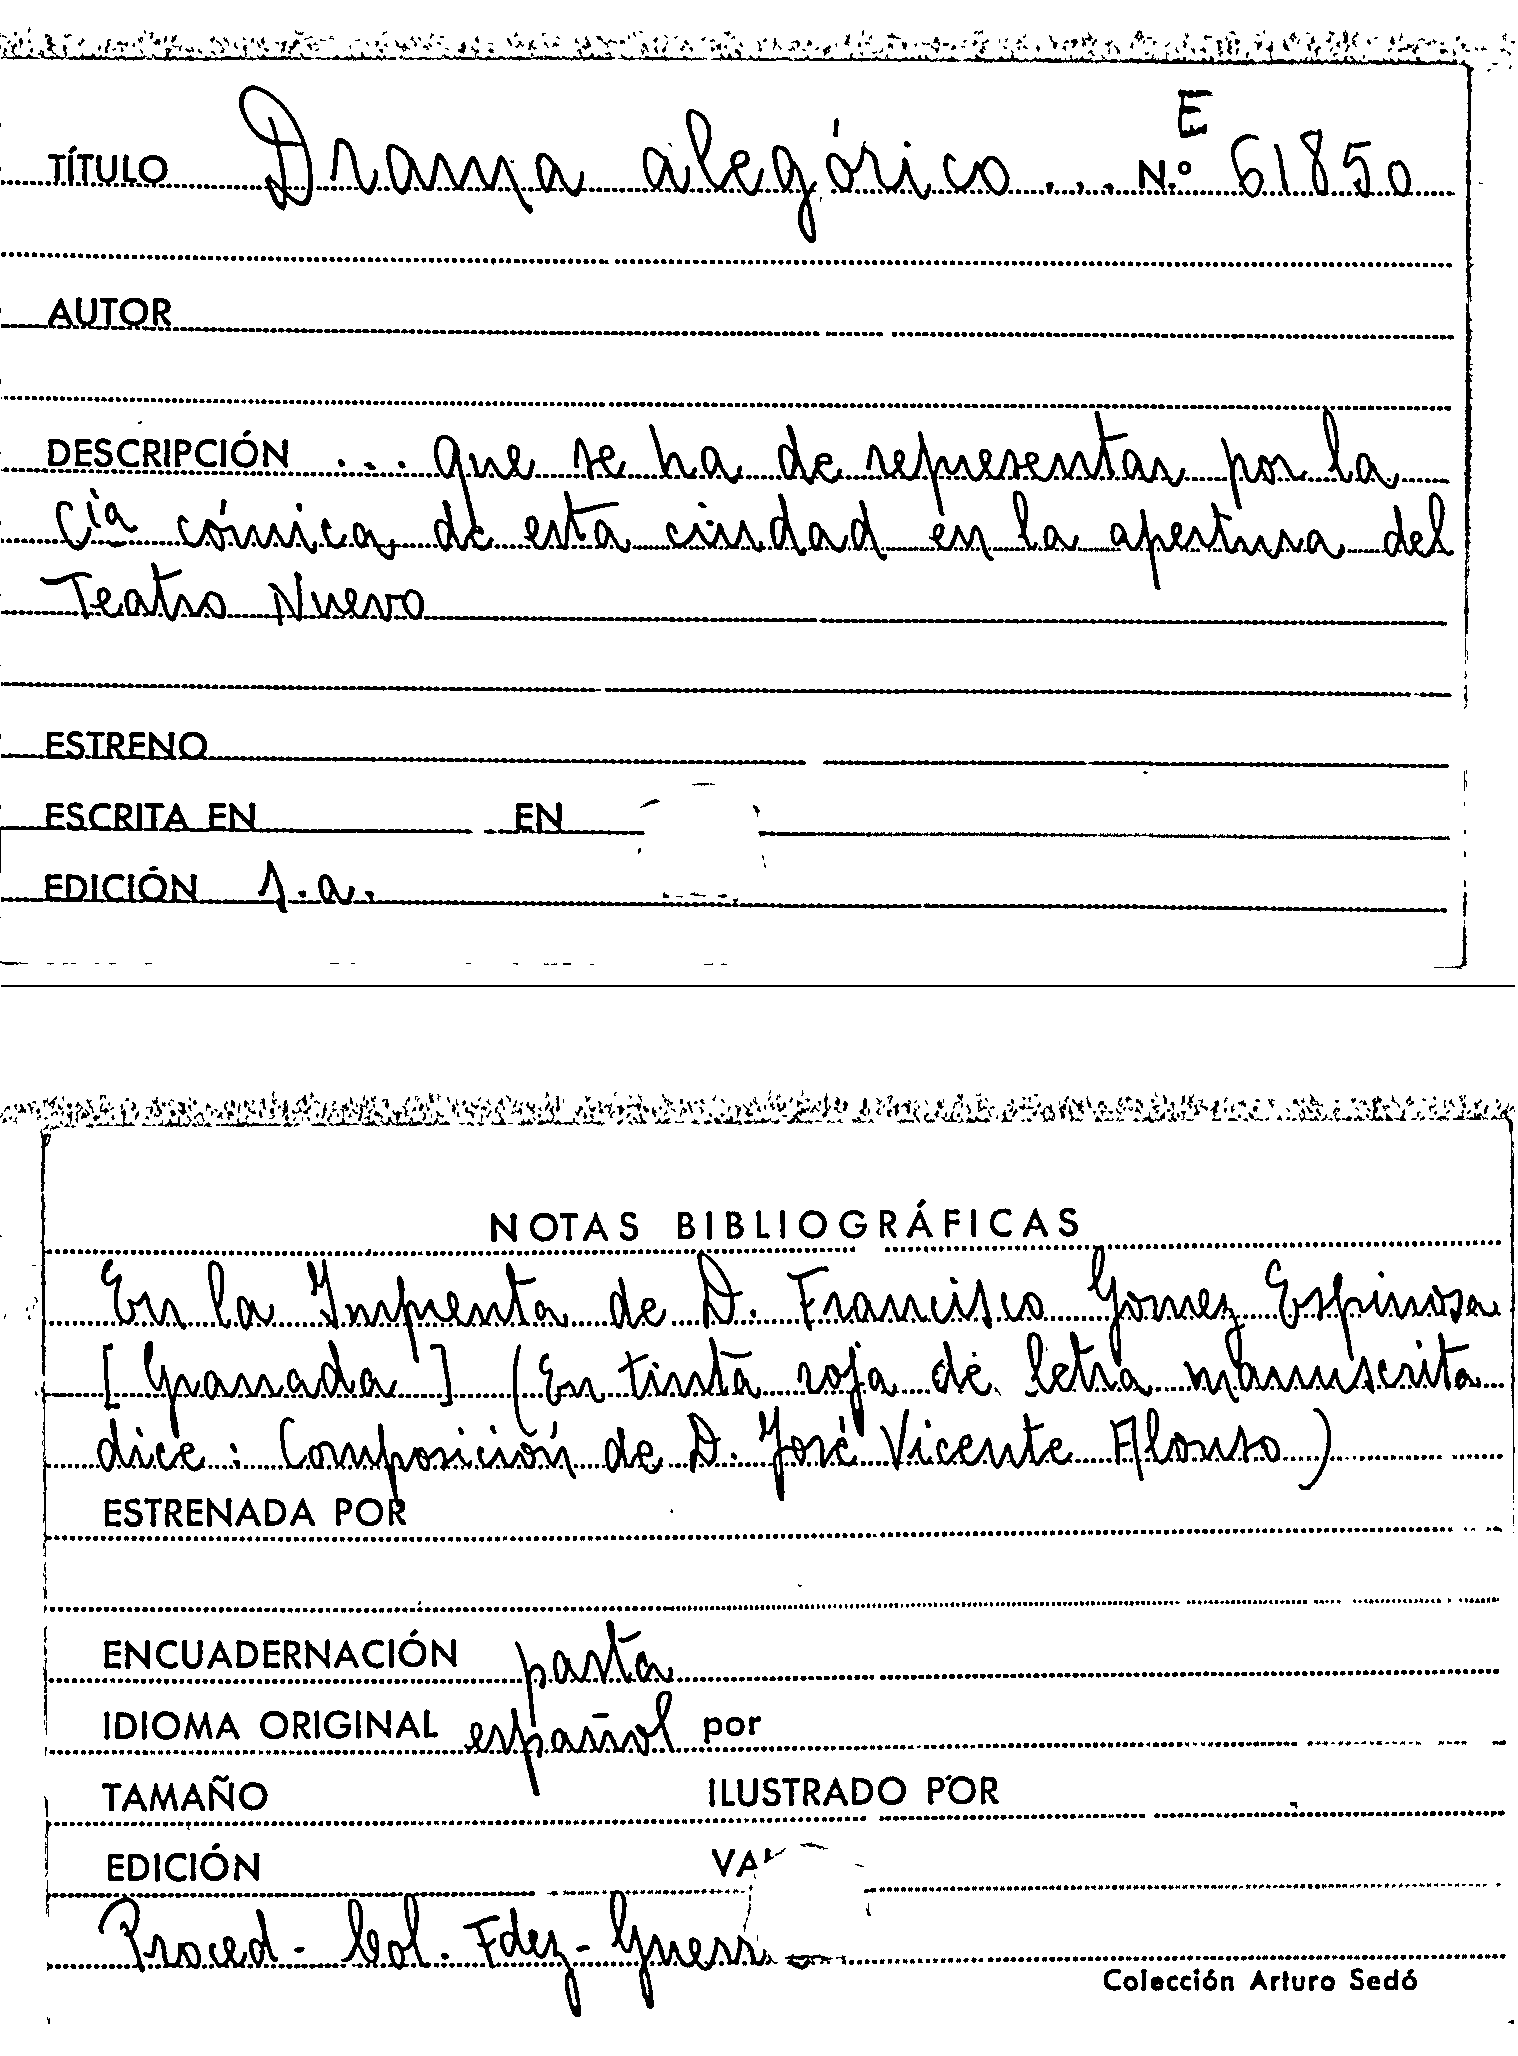 E
TÍTULO Drama alegórico ... N.º 61850
AUTOR
DESCRIPCIÓN ... que se ha de representar por la
Cía cómica de esta ciudad en la apertura del
Teatro Nuevo
ESTRENO
ESCRITA EN EN
EDICIÓN s.a.
NOTAS BIBLIOGRÁFICAS
En la Imprenta de D. Francisco Gomez Espinosa
[Granada] (En tinta roja de letra manuscrita
dice: Composición de D. José Vicente Alonso)
ESTRENADA POR
ENCUADERNACIÓN pasta
IDIOMA ORIGINAL español por
TAMAÑO ILUSTRADO POR
EDICIÓN
Proced- Col. Fdez-
Colección Arturo Sedó